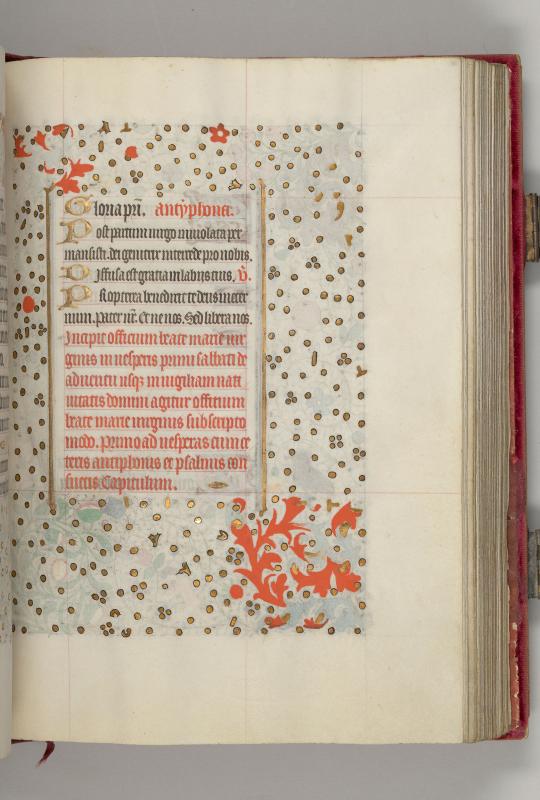 Gloria pr̄i. antyphona.
Post partum virgo inviolata per
mansisti. dei genitrix intercede pro nobis.
Diffusa est gratia in labiis tuis. v̄.
Propterea benedixit te deus in eter
num. Pater nr̄. Et ne nos. Sed libera nos.
Incipit officium beate marie vir
ginis in vesperis primi sabbati de
adventu usqȝ in vigiliam nati
vitatis domini agitur officium
beate marie virginis sub scripto
modo. Primo ad vesperas cum ce
teris antiphonis et psalmis con
suetis Capitulum.